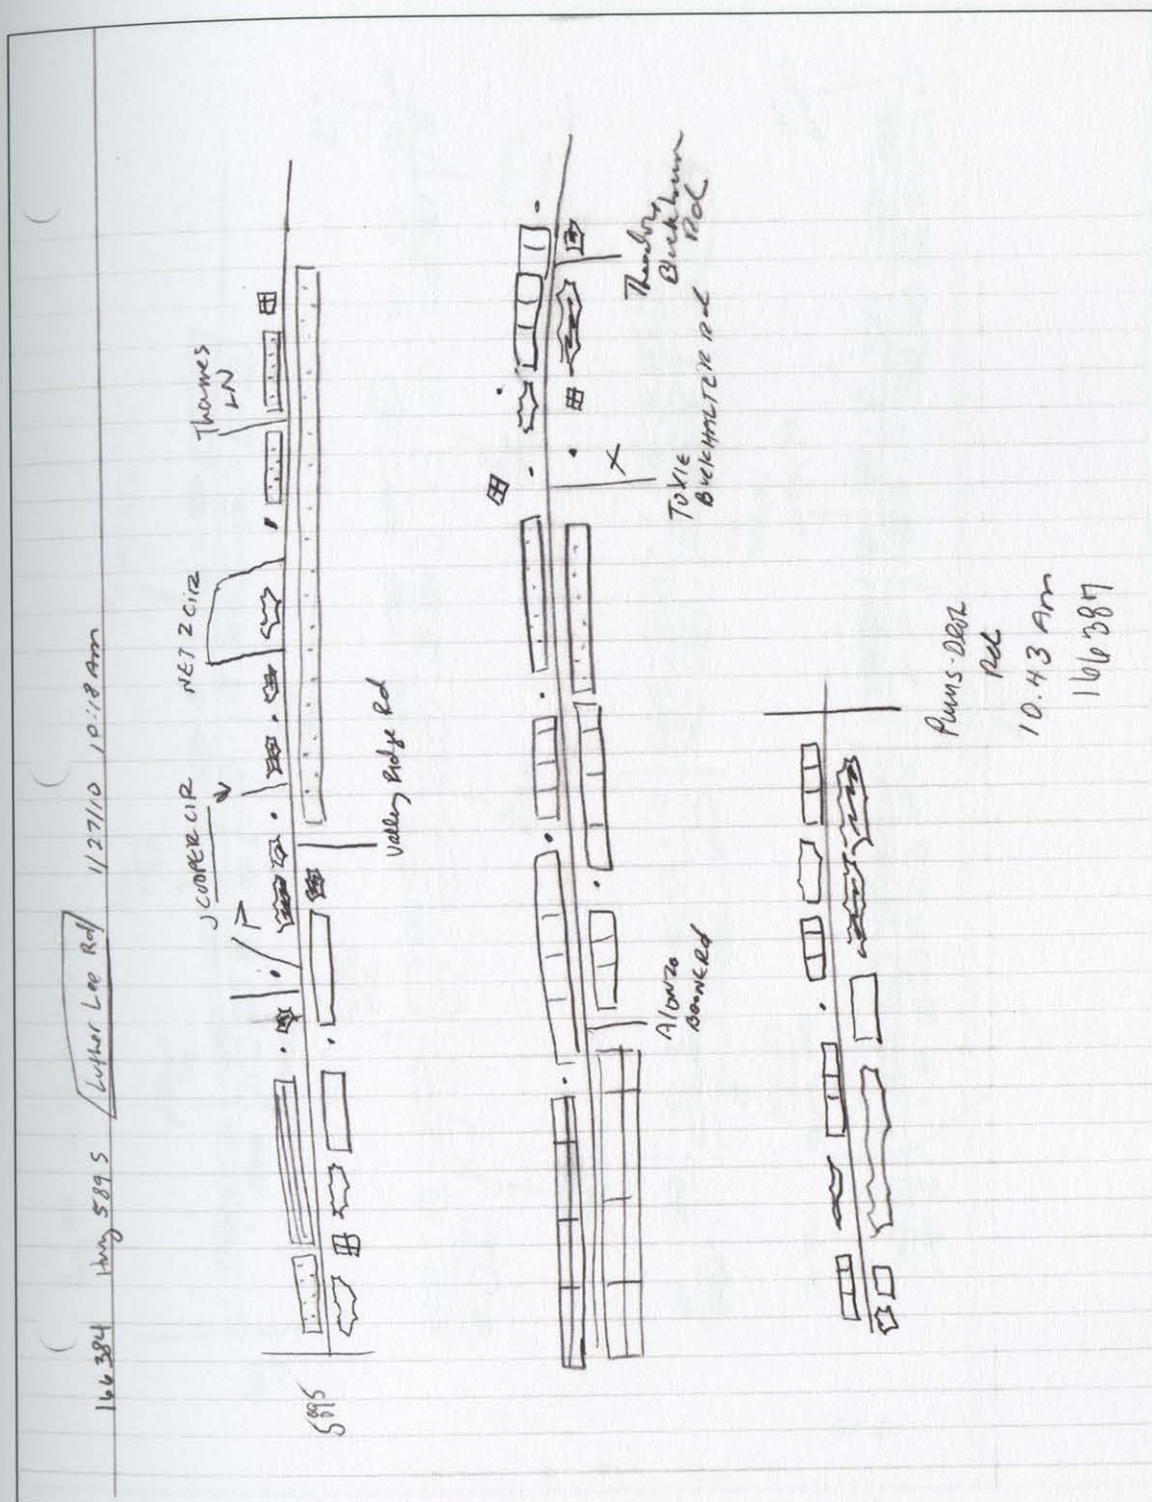 166384 Hwy 589 S Luther Lee Rd 1/27/10 10:18 Am
J COOPER CIR
NET 2 CIR
Thames
LN
589S
Valley Ridge Rd
Alonzo
Boone Rd
TOXIE
BUCKHALTER Rd
Theodore
Rd
Rd
10.43 Am
166387